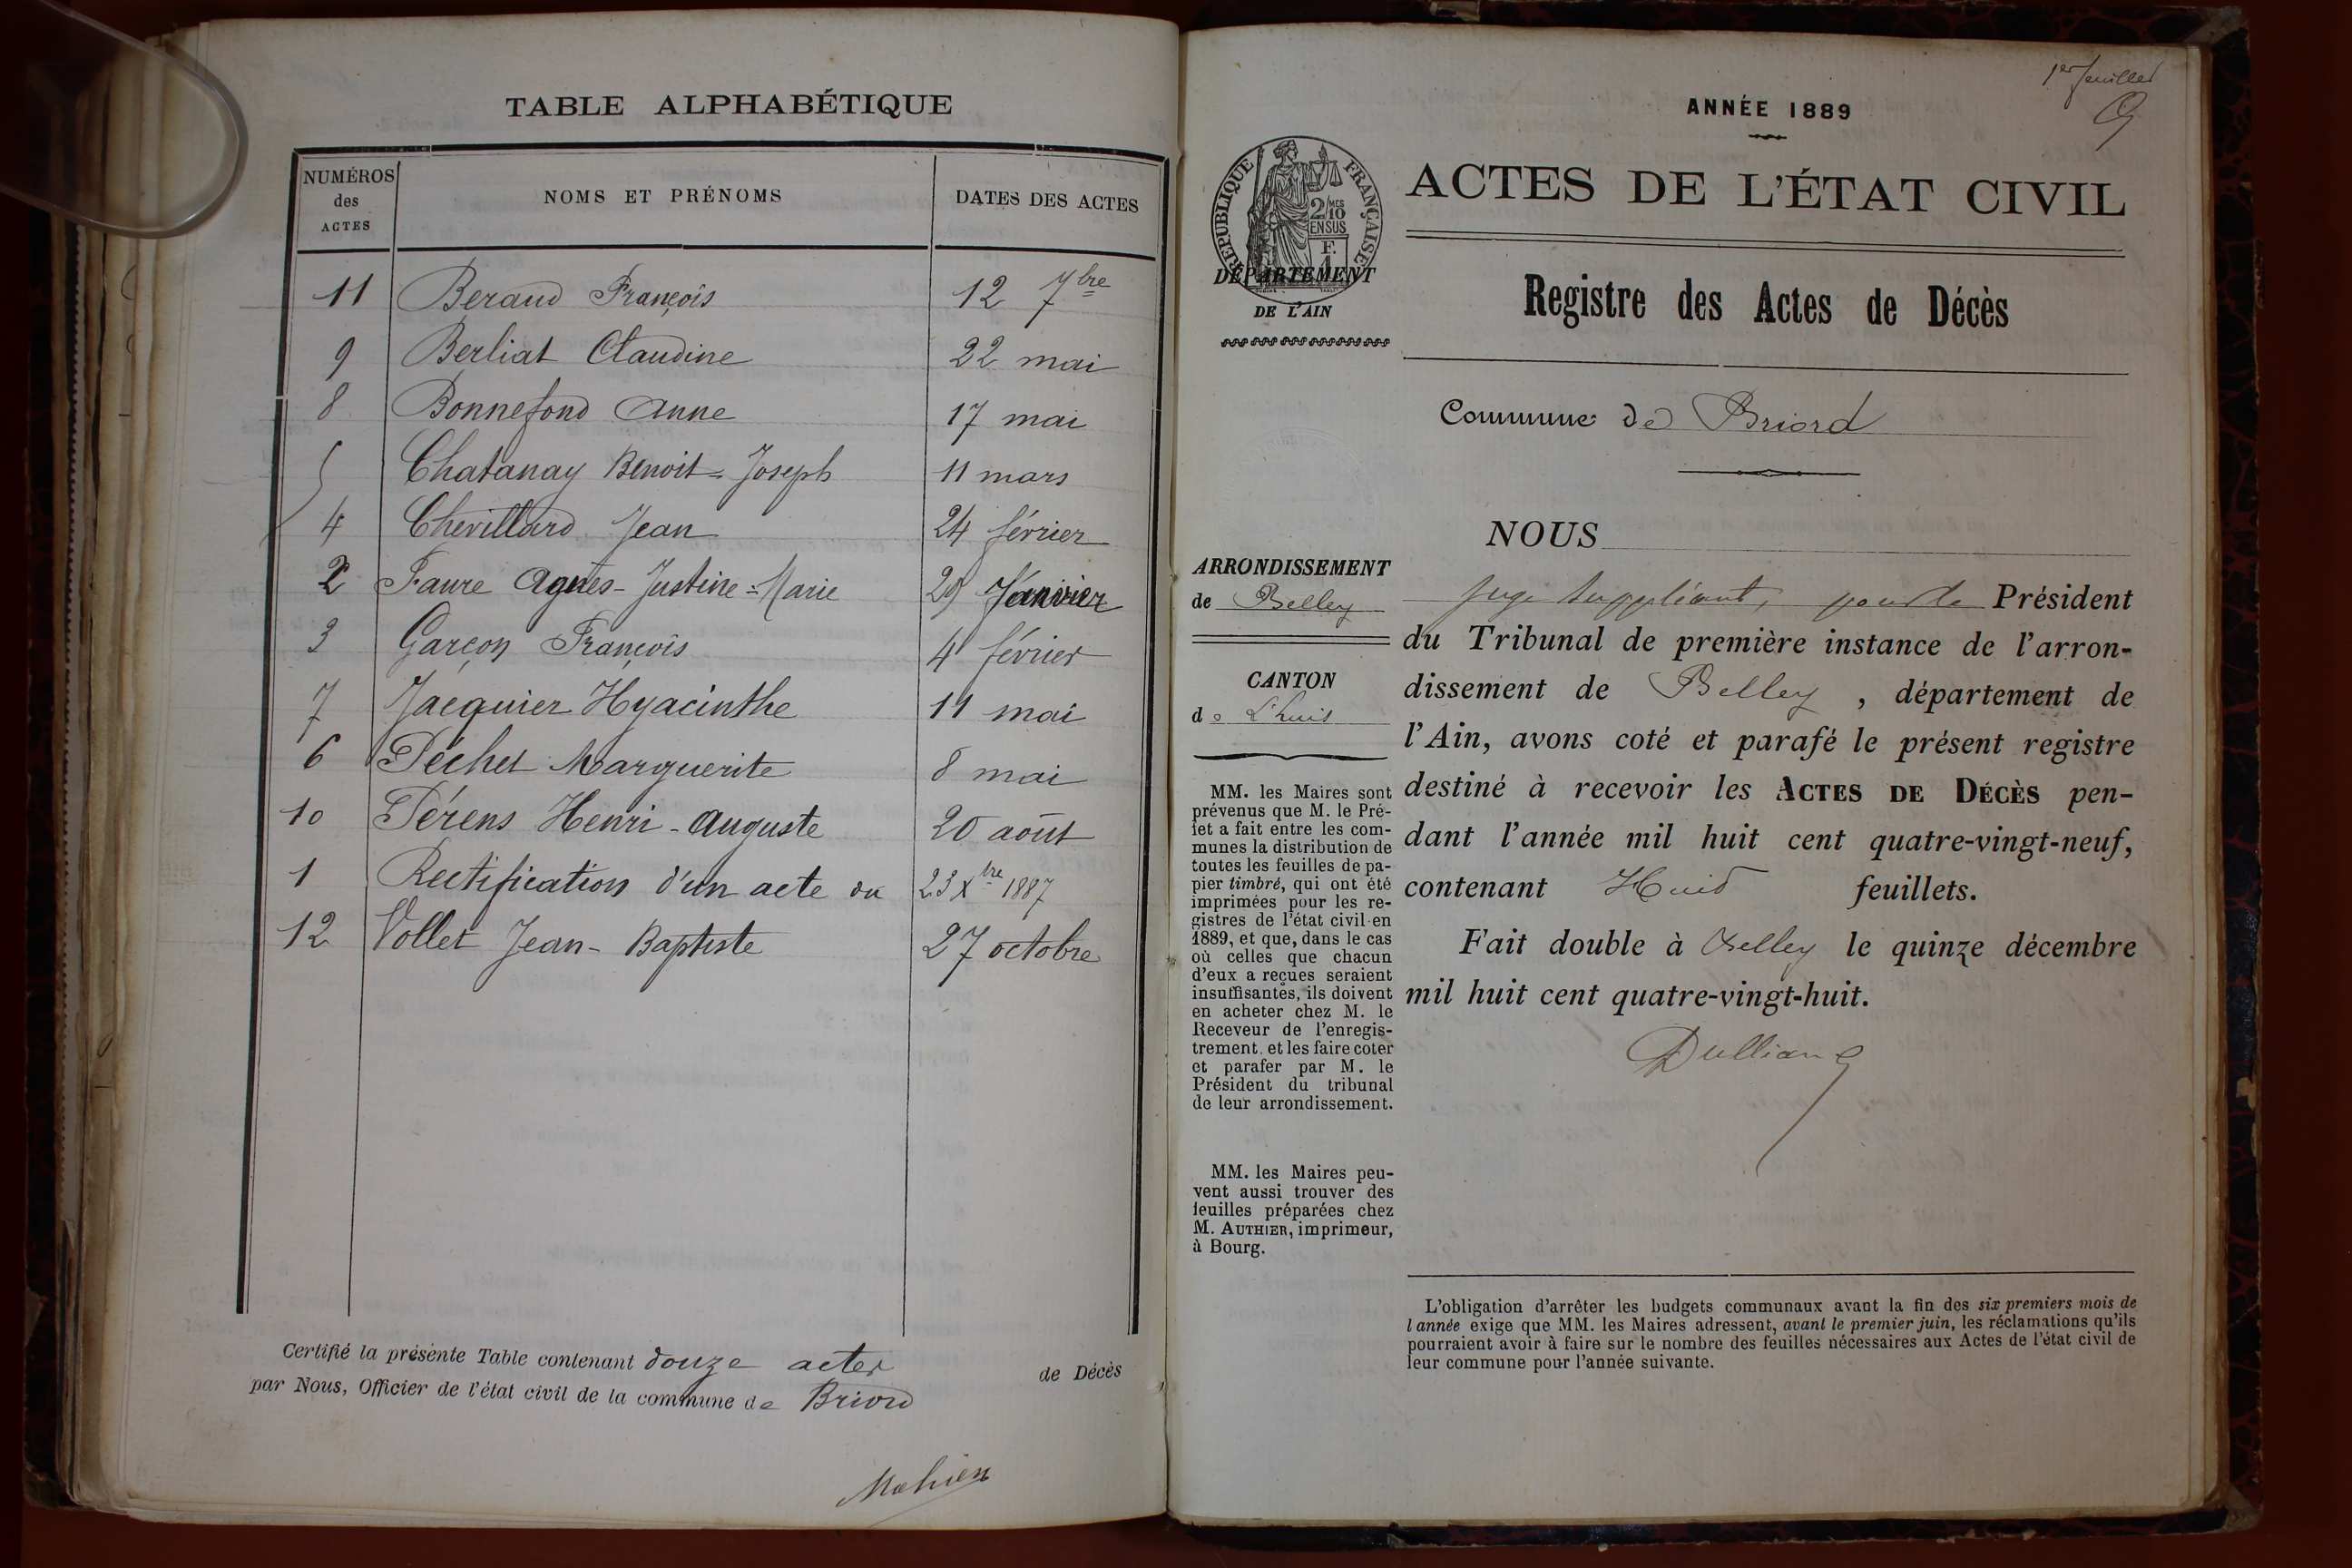 TABLE ALPHABÉTIQUE
NUMÉROS des ACTES NOMS ET PRÉNOMS DATES DES ACTES
11 Beraud François 12 7bre
9 Berliat Claudine 22 mai
8 Bonnefond Anne 17 mai
5 Chatanay Benoit-Joseph 11 mars
4 Chevillard Jean 24 février
2 Faure Agnès-Justine-Marie 29 Janvier
3 Garçon François 4 février
7 Jacquier Hyacinthe 11 mai
6 Péchet Marguerite 8 mai
10 Pérens Henri-Auguste 20 août
1 Rectification d'un acte du 23 Xbre 1887
12 Vollet Jean-Baptiste 27 octobre
Certifié la présente Table contenant douze actes de Décès
par Nous, Officier de l'état civil de la commune de Briord
1er feuillet
ANNÉE 1889
RÉPUBLIQUE FRANÇAISE
2/10 MES
EN SUS
F.
DÉPARTEMENT
DE L'AIN
ACTES DE L'ÉTAT CIVIL
Registre des Actes de Décès
Commune de Briord
ARRONDISSEMENT
de Belley
CANTON
de L'huis
MM. les Maires sont
prévenus que M. le Pré-
fet a fait entre les com-
munes la distribution de
toutes les feuilles de pa-
pier timbré, qui ont été
imprimées pour les re-
gistres de l'état civil en
1889, et que, dans le cas
où celles que chacun
d'eux a reçues seraient
insuffisantes, ils doivent
en acheter chez M. le
Receveur de l'enregis-
trement. et les faire coter
et parafer par M. le
Président du tribunal
de leur arrondissement.
MM. les Maires peu-
vent aussi trouver des
feuilles préparées chez
M. AUTHIER, imprimeur,
à Bourg.
NOUS
Juge suppléant, pour le Président
du Tribunal de première instance de l'arron-
dissement de Belley, département de
l'Ain, avons coté et parafé le présent registre
destiné à recevoir les ACTES DE DÉCÈS pen-
dant l'année mil huit cent quatre-vingt-neuf,
contenant Huit feuillets.
Fait double à Belley le quinze décembre
mil huit cent quatre-vingt-huit.
L'obligation d'arrêter les budgets communaux avant la fin des six premiers mois de
l'année exige que MM. les Maires adressent, avant le premier juin, les réclamations qu'ils
pourraient avoir à faire sur le nombre des feuilles nécessaires aux Actes de l'état civil de
leur commune pour l'année suivante.